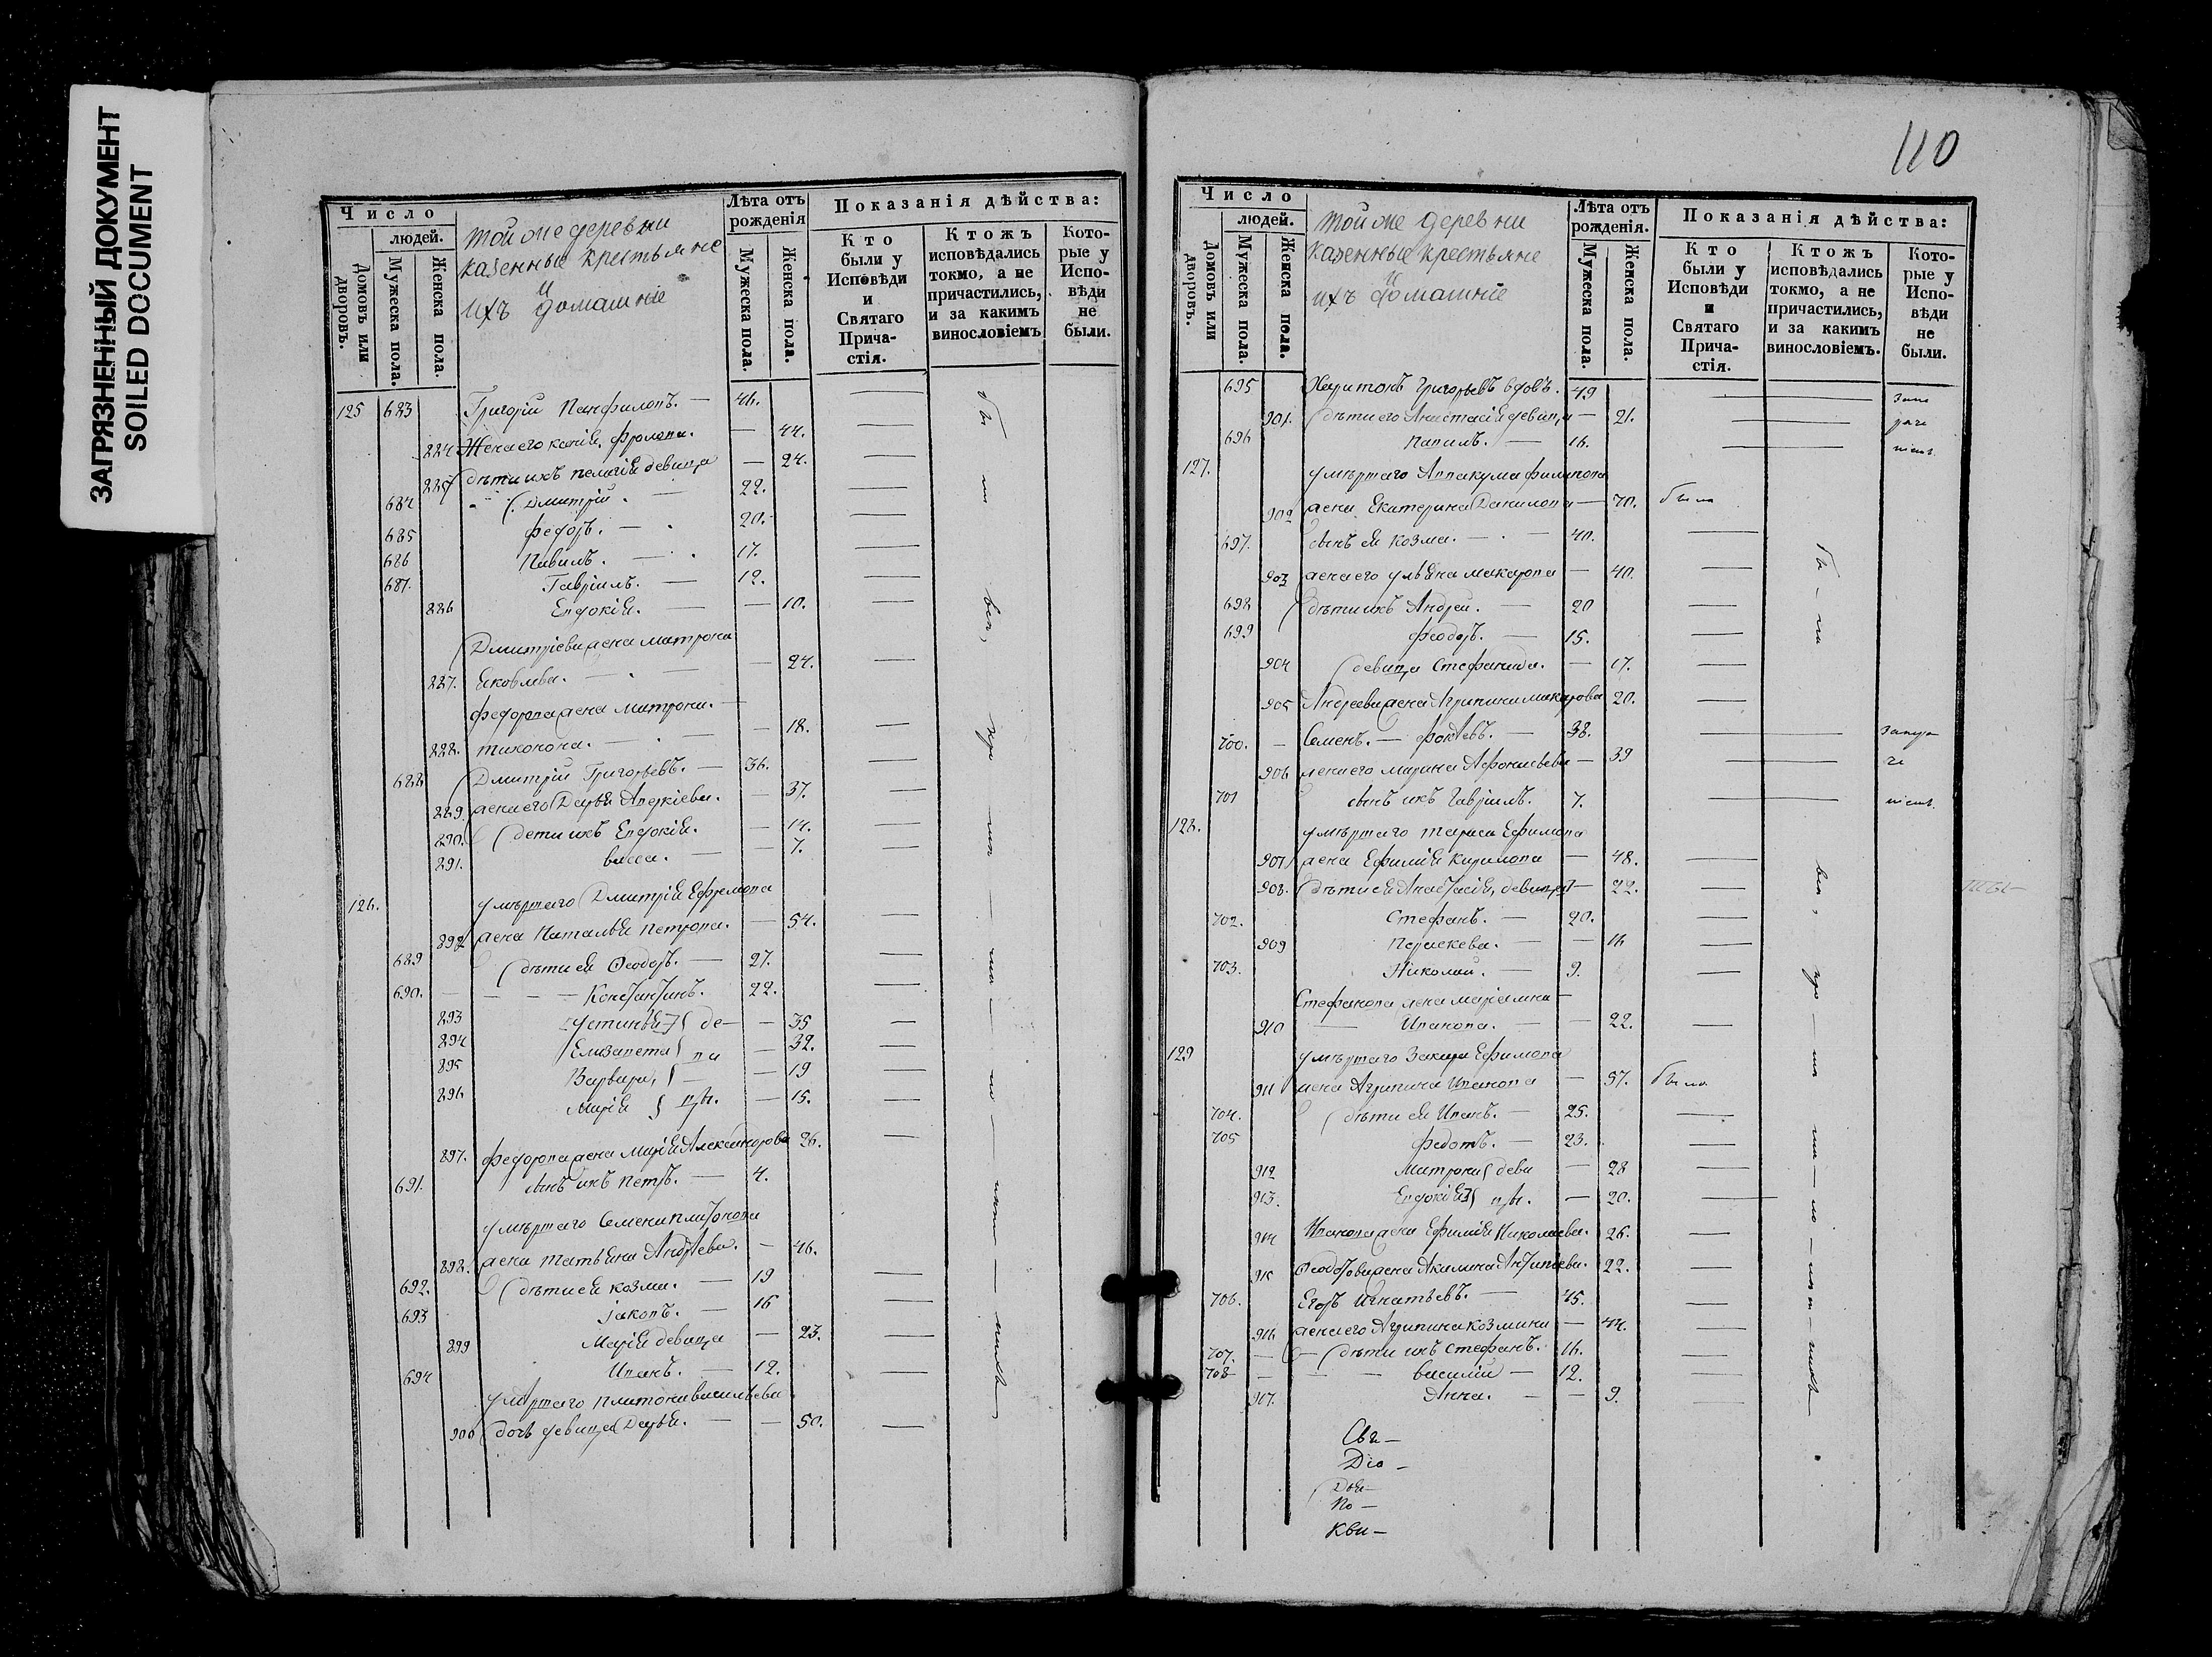 ЗАГРЯЗНЕННЫЙ ДОКУМЕНТ
SOILED DOCUMENT
Число
людей.
Домовъ или дворовъ.
Мужеска пола.
Женска пола.
той же деревни
казенные крестьяне
и
ихъ домашніе
Лѣта отъ рожденія
Мужеска пола.
Женска пола.
Показанія дѣйства:
Кто были у Исповѣди и Святаго Причастія.
Ктожъ исповѣдались токмо, а не причастились, и за какимъ винословіемъ
Которые у Исповѣди не были.
125 683 Григорій Панфиловъ. — 46.
884 Жена его Фролова. — 44.
885 дѣти ихъ Пелагія девица — 24.
684 Дмитрій. — 22.
685 Федоръ. — 20.
686 Павилъ. — 17.
687. Гавріилъ. — 12.
886 Евдокія. — 10.
Дмитріева жена Матрона
887. Яковлева. — 24.
Федорова жена Матрона. —
888. Тихонова. — 18.
688 Дмитрій Григорьевъ. — 36.
889 жена его Дарья — 37.
890. дети ихъ Евдокія. — 14.
891. Васса. — 7.
126. умершаго Дмитрія Ефремова
892 жена Наталья Петрова. — 54.
689 дѣти ея Ѳеодоръ. — 27.
690. — Константинъ. 22.
893 Устинья де— 35
894 Елизавета ви — 32.
895 Варвара, — 19
896 Марія цы. — 15.
897. Федорова жена Марія Александрова 26.
691. сынъ ихъ Петръ. — 4.
умершаго Семена Платонова
898. жена Татьяна Андреева. — 46.
692. дѣти ея Козма. — 19
693 Іаковъ. — 16
899 Марія девица — 23.
694 Иванъ. — 12.
умершаго Платона Васильева
900 дочь девица Дарья. — 50.
110
Число
людей.
Домовъ или дворовъ.
Мужеска пола.
Женска пола.
той же деревни
казенные крестьяне
и
ихъ домашніе
Лѣта отъ рожденія.
Мужеска пола.
Женска пола.
Показанія дѣйства:
Кто были у Исповѣди и Святаго Причастія.
Ктожъ исповѣдались токмо, а не причастились, и за какимъ винословіемъ.
Которые у Исповѣди не были.
695 Харитонъ Григорьевъ вдовъ. 49
901. дѣти его Анастасія девица — 21.
696 Павилъ. — 16.
127. умершаго Аввакума Филипова
902 жена Екатерина Данилова — 70. была
697. сынъ ея Козма. — 40.
903 жена его Ульяна Макарова — 40.
698 дѣти ихъ Андрей. — 20
699 Феодоръ. — 15.
904 девица Стефанида. — 17.
905 Андреева жена Агрипина Макарова 20.
700. — Семенъ. — 38.
906 жена его Марина Афонасьева — 39
701 сынъ ихъ Гавріилъ. 7.
128. умершаго Тараса Ефимова
907. жена Ефимія Кирилова — 48.
908. дѣти ея Анастасія, девица — 22.
702. Стефанъ. — 20.
909 Параскева. — 16
703. Николай. — 9.
Стефанова жена Маріамна —
910 — Иванова. — 22.
129 умершаго Захара Ефимова
911 жена Агрипина Иванова — 57. была
704. дѣти ея Иванъ. — 25.
705 Федотъ. — 23.
912 Матрона деви — 28
913. Евдокія цы. — 20.
914 Иванова жена Ефимія Николаева. 26.
915 Ѳеодотова жена Акилина Антипьева. 22.
706. Егоръ Игнатьевъ. — 45.
916 жена его Агрипина Козмина — 44.
707. — дѣти ихъ Стефанъ. 16.
708 — Василій — 12.
917. Анна. — 9.
Свя—
Діо —
По —